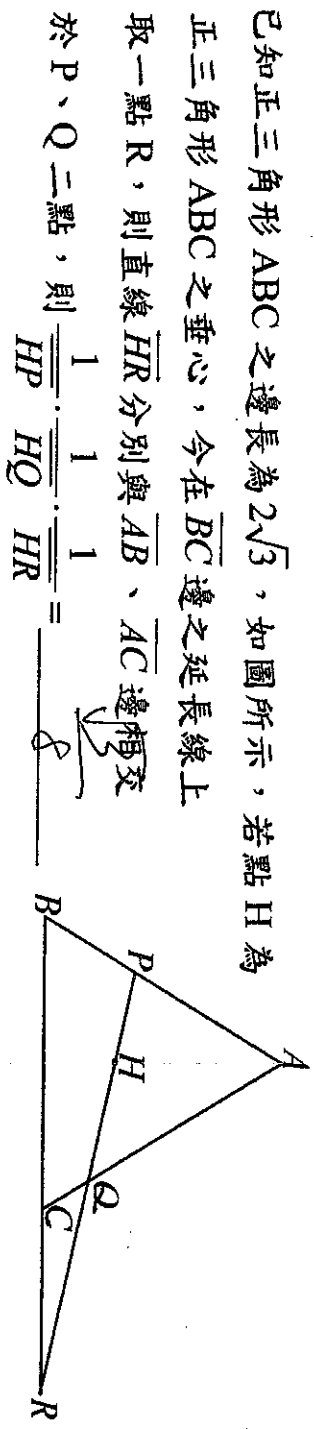 已知正三角形 ABC 之邊長為 2√3，如圖所示，若點 H 為
正三角形 ABC 之垂心，今在 BC 邊之延長線上
取一點 R，則直線 HR 分別與 AB、AC 邊相交
於 P、Q 二點，則 1/HP · 1/HQ · 1/HR =
8
A
P
H
Q
B
C
R